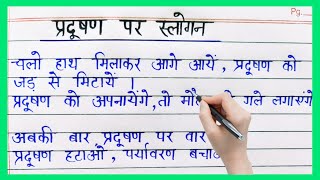 Pg
प्रदूषण पर स्लोगन
चलो हाथ मिलाकर आगे आयें, प्रदूषण को
जड़ से मिटायें ।
प्रदूषण को अपनायेंगे, तो गले लगाएंगे
अबकी बार, प्रदूषण पर वार
प्रदूषण हटाओ, पर्यावरण